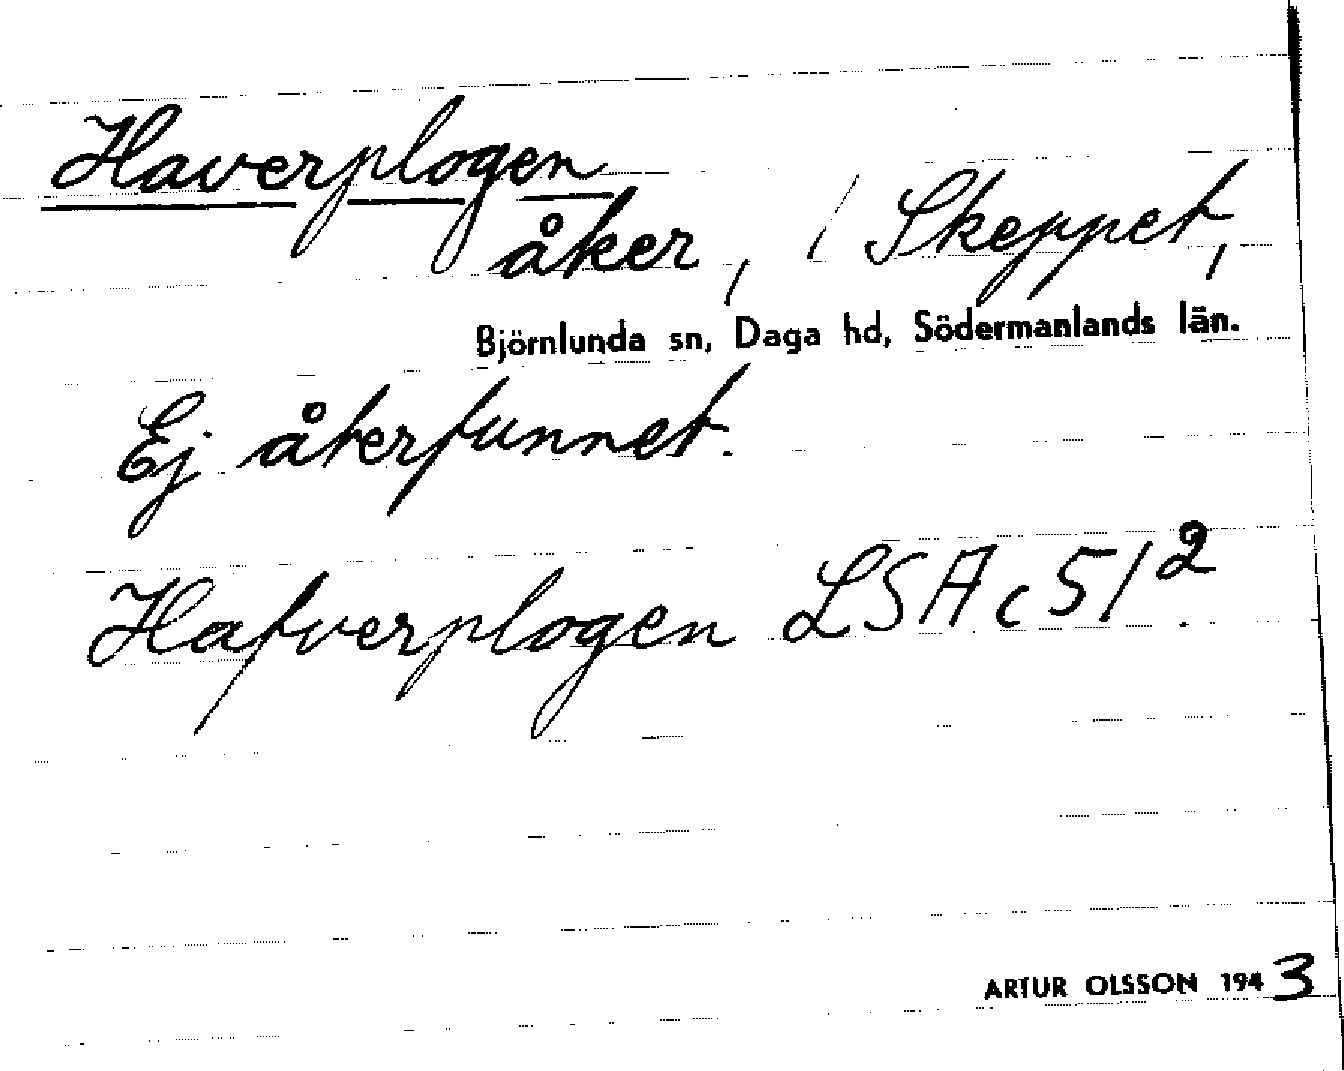 Haverplogen
åker, / Skeppet,
Björnlunda sn, Daga hd, Södermanlands län.
Ej återfunnet.
Hafverplogen LSA c 51²
ARTUR OLSSON 1943